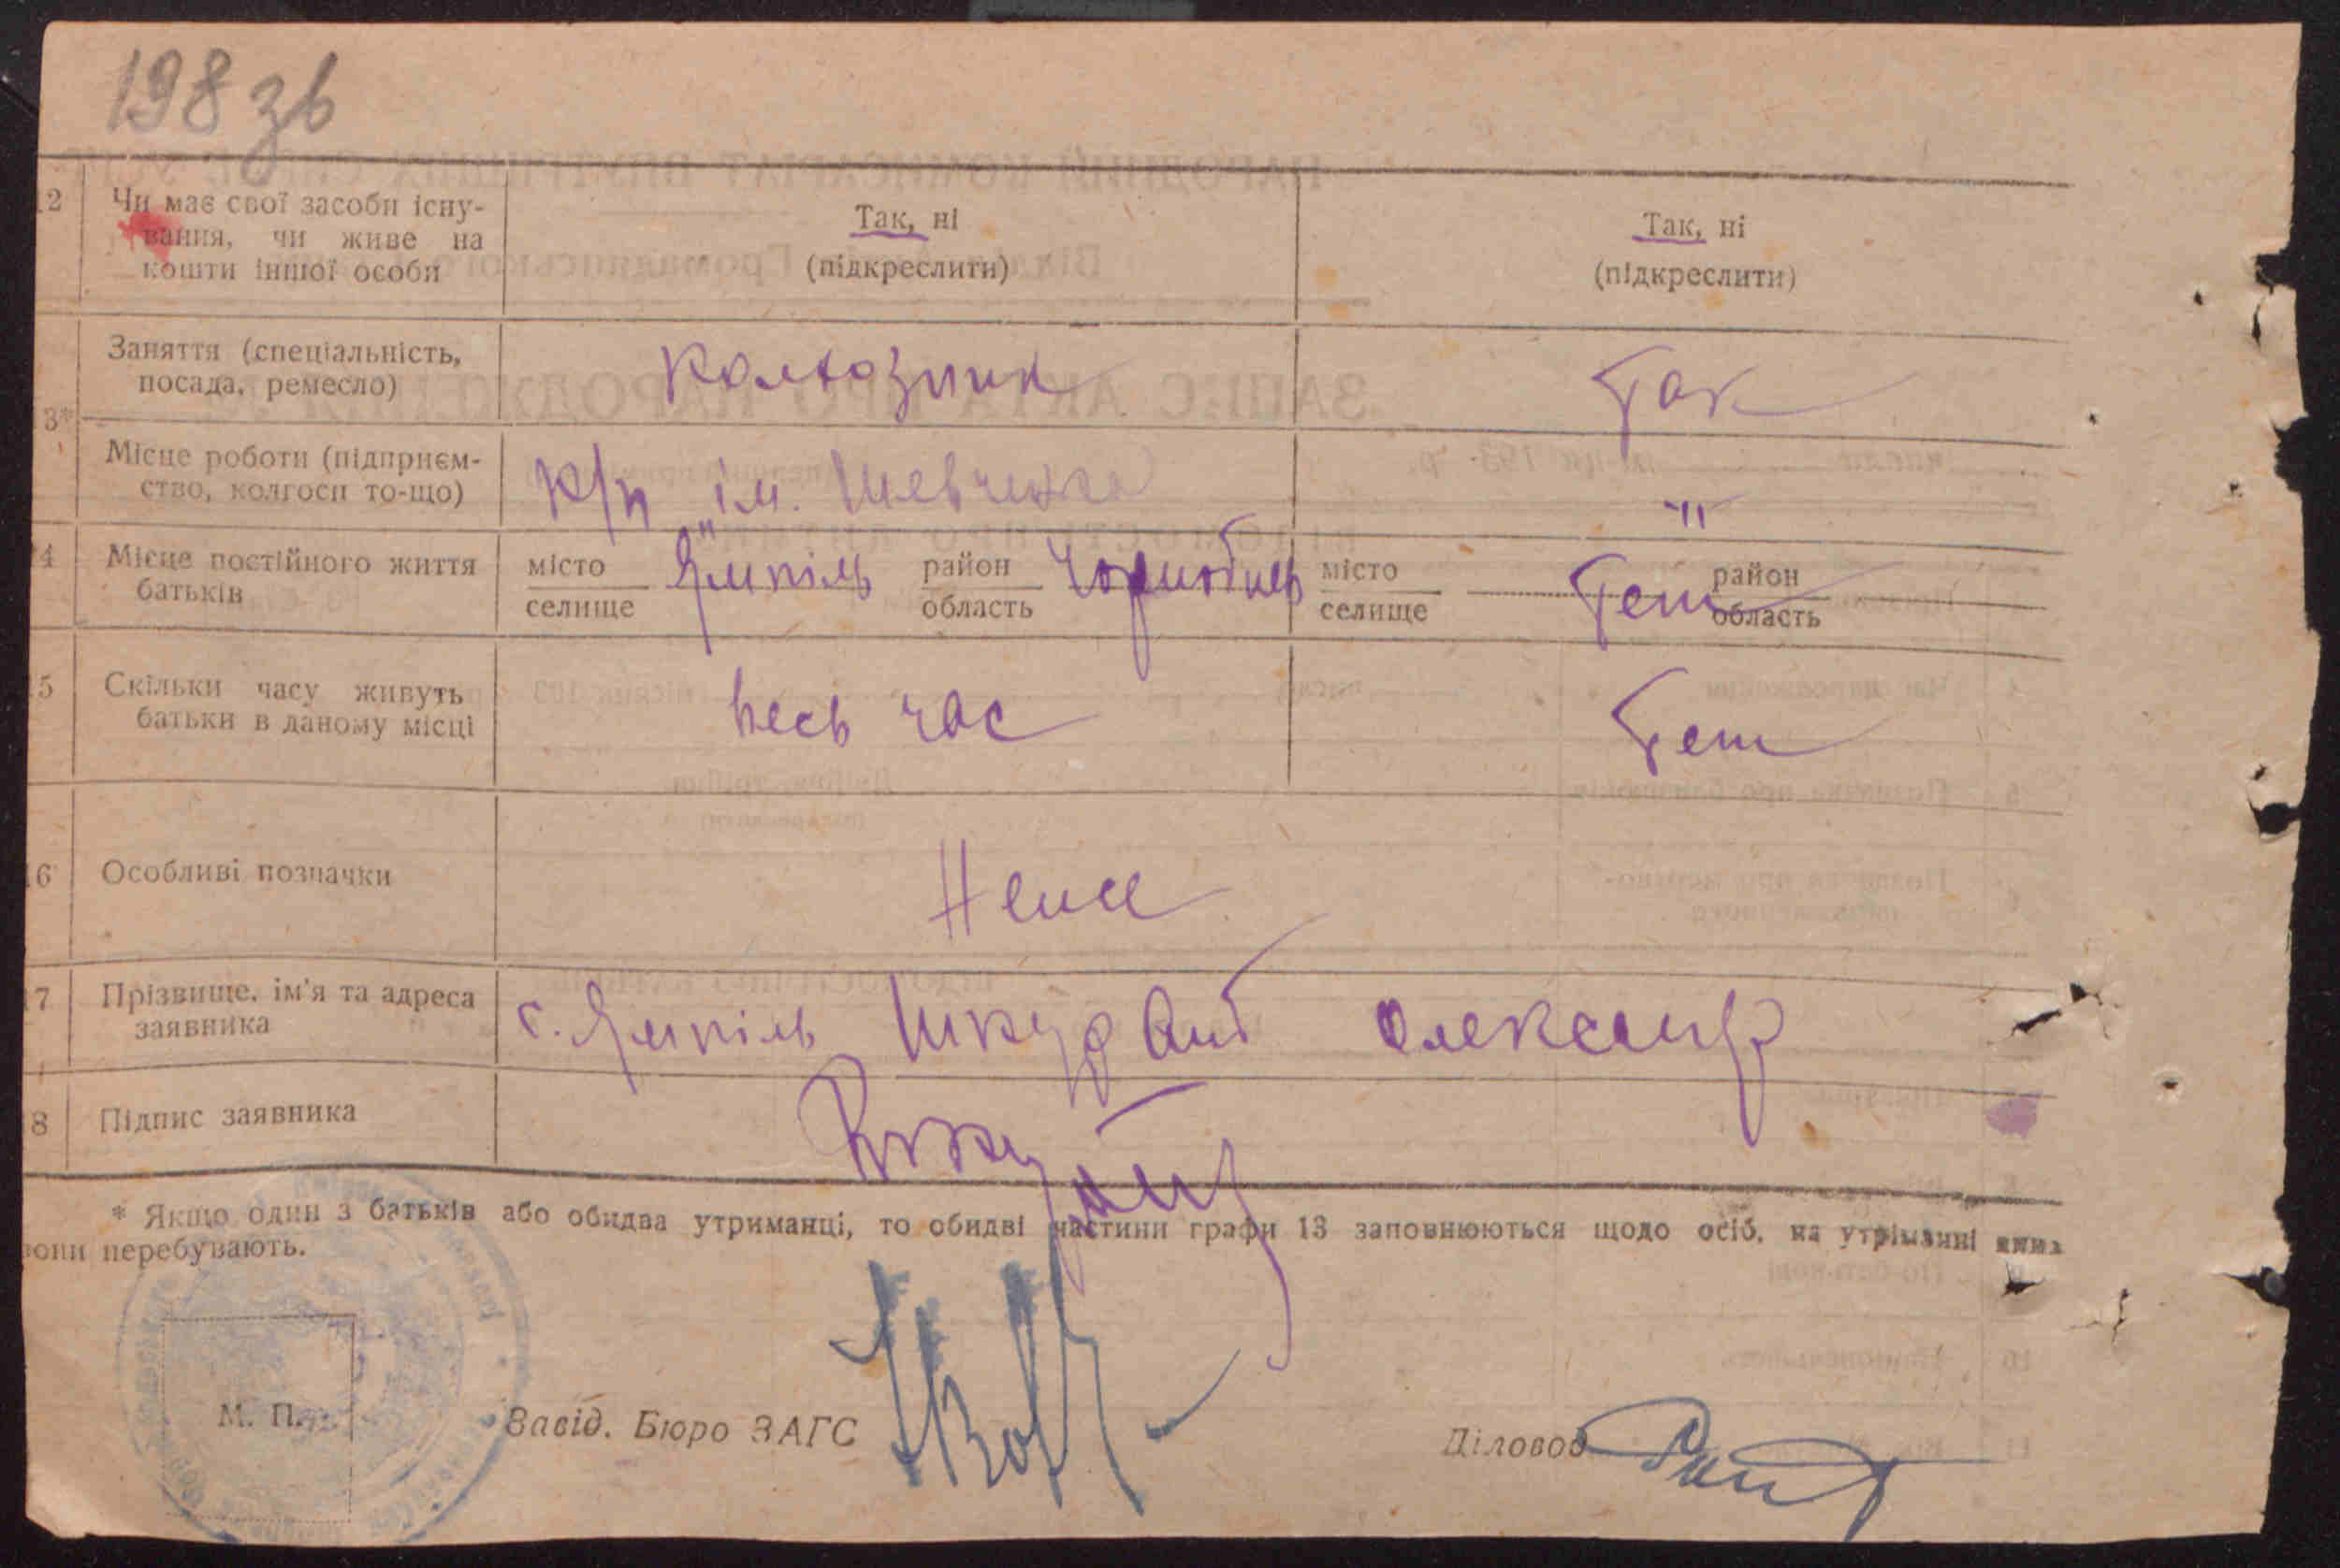 198 зв
12 Чи має свої засоби існу- Так, ні Так, ні
вання, чи живе на (підкреслити) (підкреслити)
кошти іншої особи
Заняття (спеціальність, Колхозник Так
посада, ремесло)
3*
Місце роботи (підприєм- К/п „ім. Шевченка -"-
ство, колгосп то-що)
14 Місце постійного життя місто Ямпіль район місто район
батьків селище область селище область
15 Скільки часу живуть весь час
батьки в даному місці
16 Особливі позначки Немає
17 Прізвище, ім'я та адреса с. Ямпіль Олександр
заявника
18 Підпис заявника
* Якщо один з батьків або обидва утриманці, то обидві частини графи 13 заповнюються щодо осіб, на утриманні яких
вони перебувають.
М. П. Завід. Бюро ЗАГС Діловод